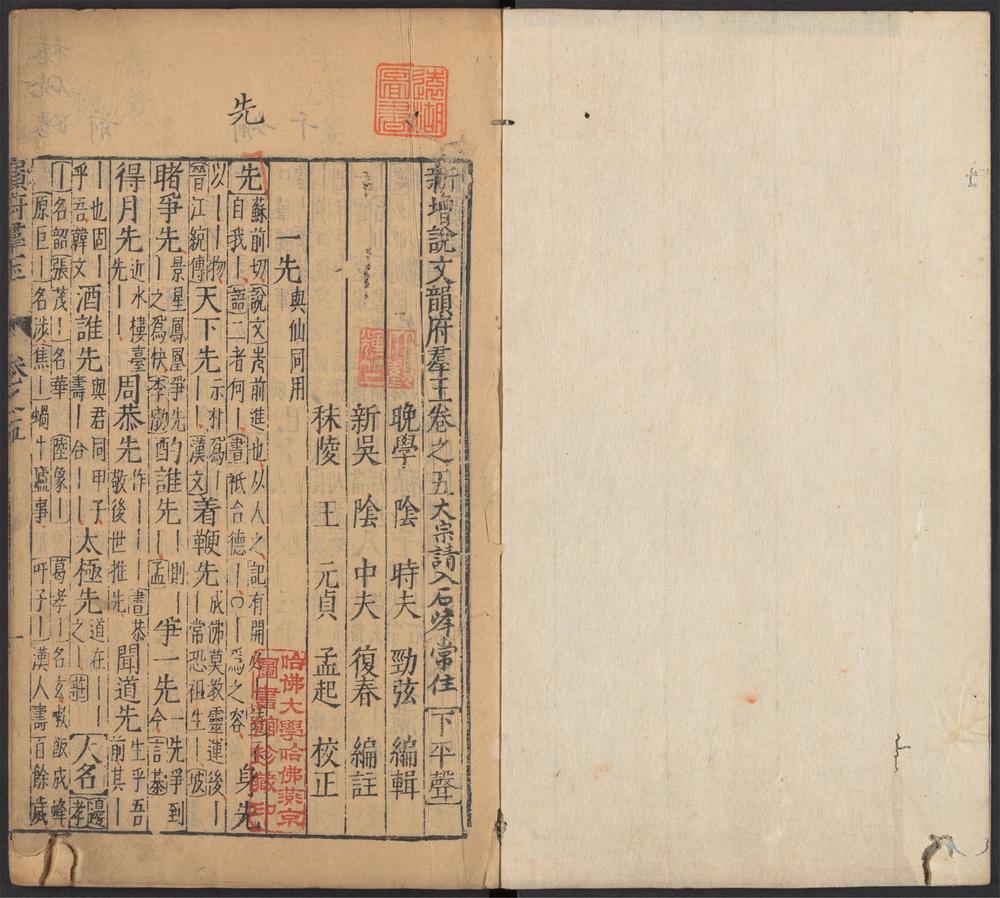 先
遠湖圖書
新增說文韻府羣玉卷之五大宗請入石峯常住 下平聲
晚學 陰 時夫 勁弦 編輯
新吳 陰 中夫 復春 編註
秣陵 王 元貞 孟起 校正
一先 與仙同用
先 蘇前切說文先前進也从人之記有開必
自我丨語二者何丨書祗台德丨○丨爲之容 身先
以丨丨物
晉江綂傳 天下先 示朴爲丨
丨丨漢文 着鞭先 成佛莫教靈運後丨
常恐祖生丨
睹爭先 景星鳳凰爭先
丨之爲快李渤 酌誰先 丨則丨
丨孟 爭一先 一先爭到
今言棊
得月先 近水樓臺
先丨丨 周恭先 作丨丨丨書恭
敬後世推先 聞道先 生乎吾
前其丨
丨也固丨
乎吾韓文 酒誰先 與君同甲子
壽丨合丨 太極先 道在丨丨
之丨莊 人名 邊
孝
丨名韶張茂丨名華 陸象丨 葛孝丨名玄嗽飯成蜂
原巨丨名涉焦丨蝸牛廬事 丨吁子丨漢人壽百餘歲
韻府羣玉 卷之五 一
哈佛大學哈佛燕京
圖書館珍藏印